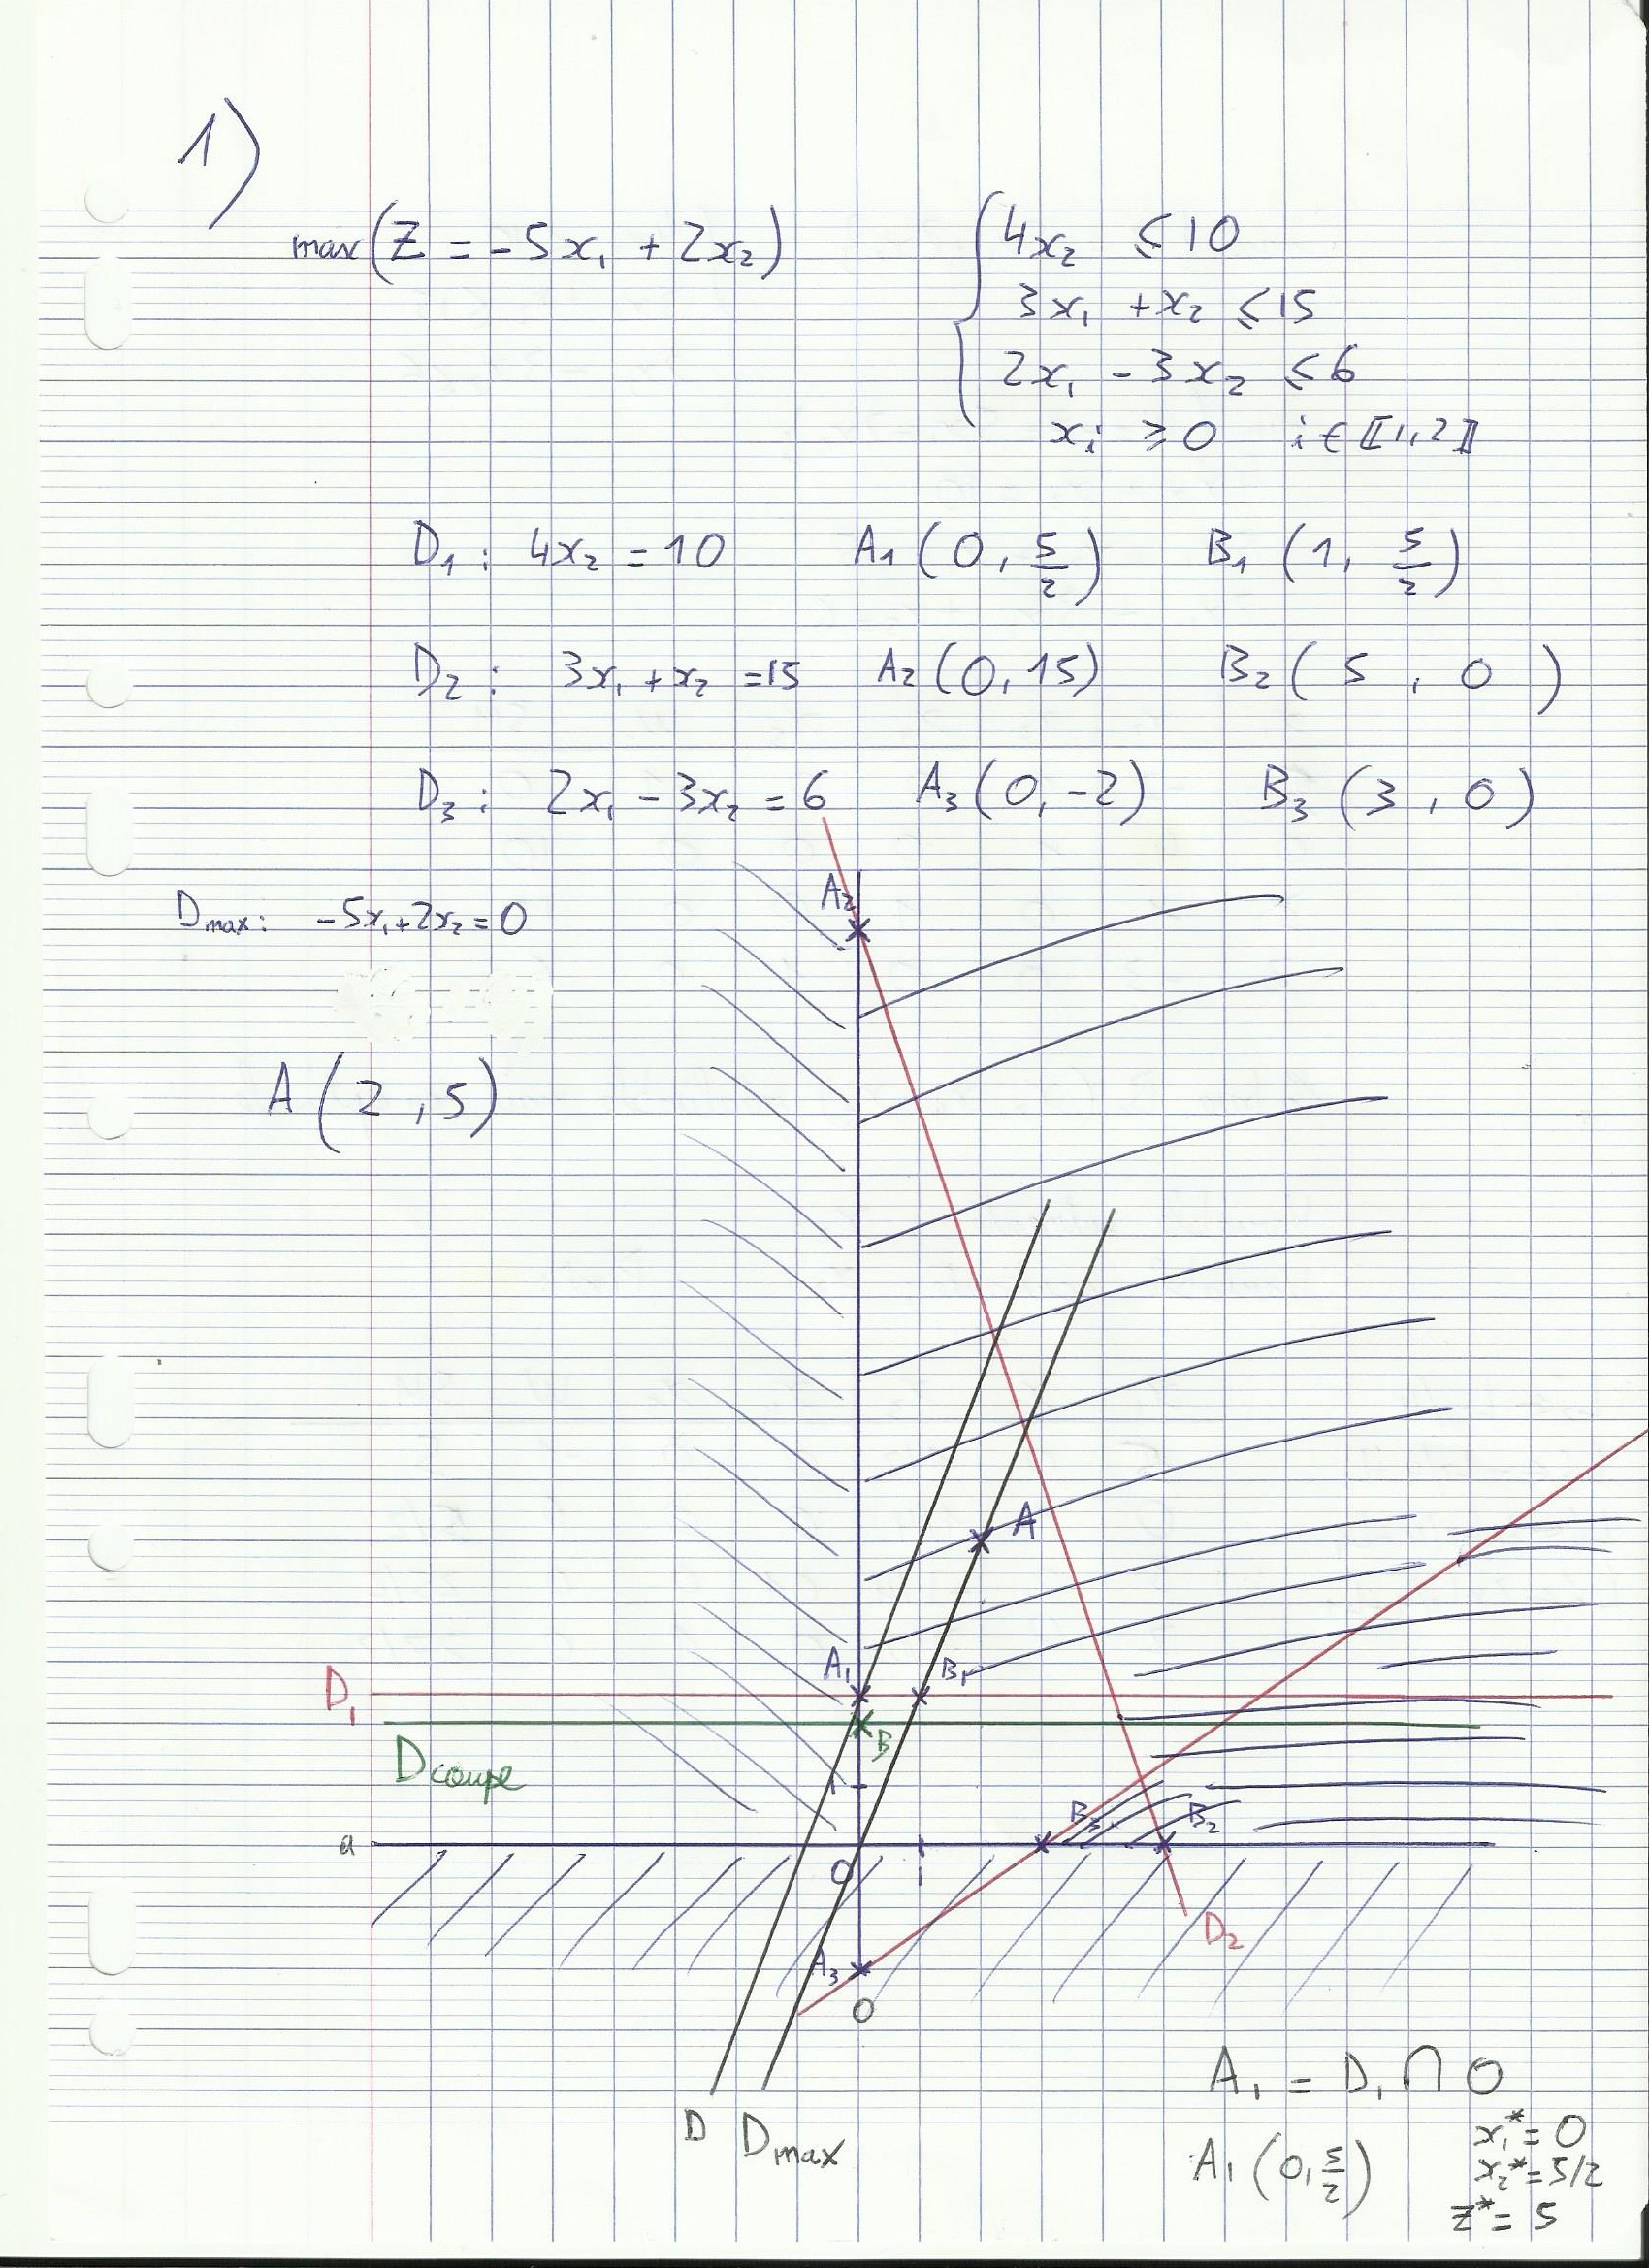 1)
max(Z = -5x₁ + 2x₂)
4x₂ ⩽ 10
3x₁ + x₂ ⩽ 15
2x₁ - 3x₂ ⩽ 6
xᵢ ⩾ 0 i ∈ ⟦1,2⟧
D₁ : 4x₂ = 10 A₁ (0, 5/2) B₁ (1, 5/2)
D₂ : 3x₁ + x₂ = 15 A₂ (0, 15) B₂ (5, 0)
D₃ : 2x₁ - 3x₂ = 6 A₃ (0, -2) B₃ (3, 0)
A₂
Dmax: -5x₁ + 2x₂ = 0
A (2, 5)
A
A₁ B₁
D₁
B
Dcoupe
1
B₃ B₂
a
0 1
D₂
A₃
O
D Dmax
A₁ = D₁ ∩ O
A₁ (0, 5/2)
x₁* = 0
x₂* = 5/2
z* = 5